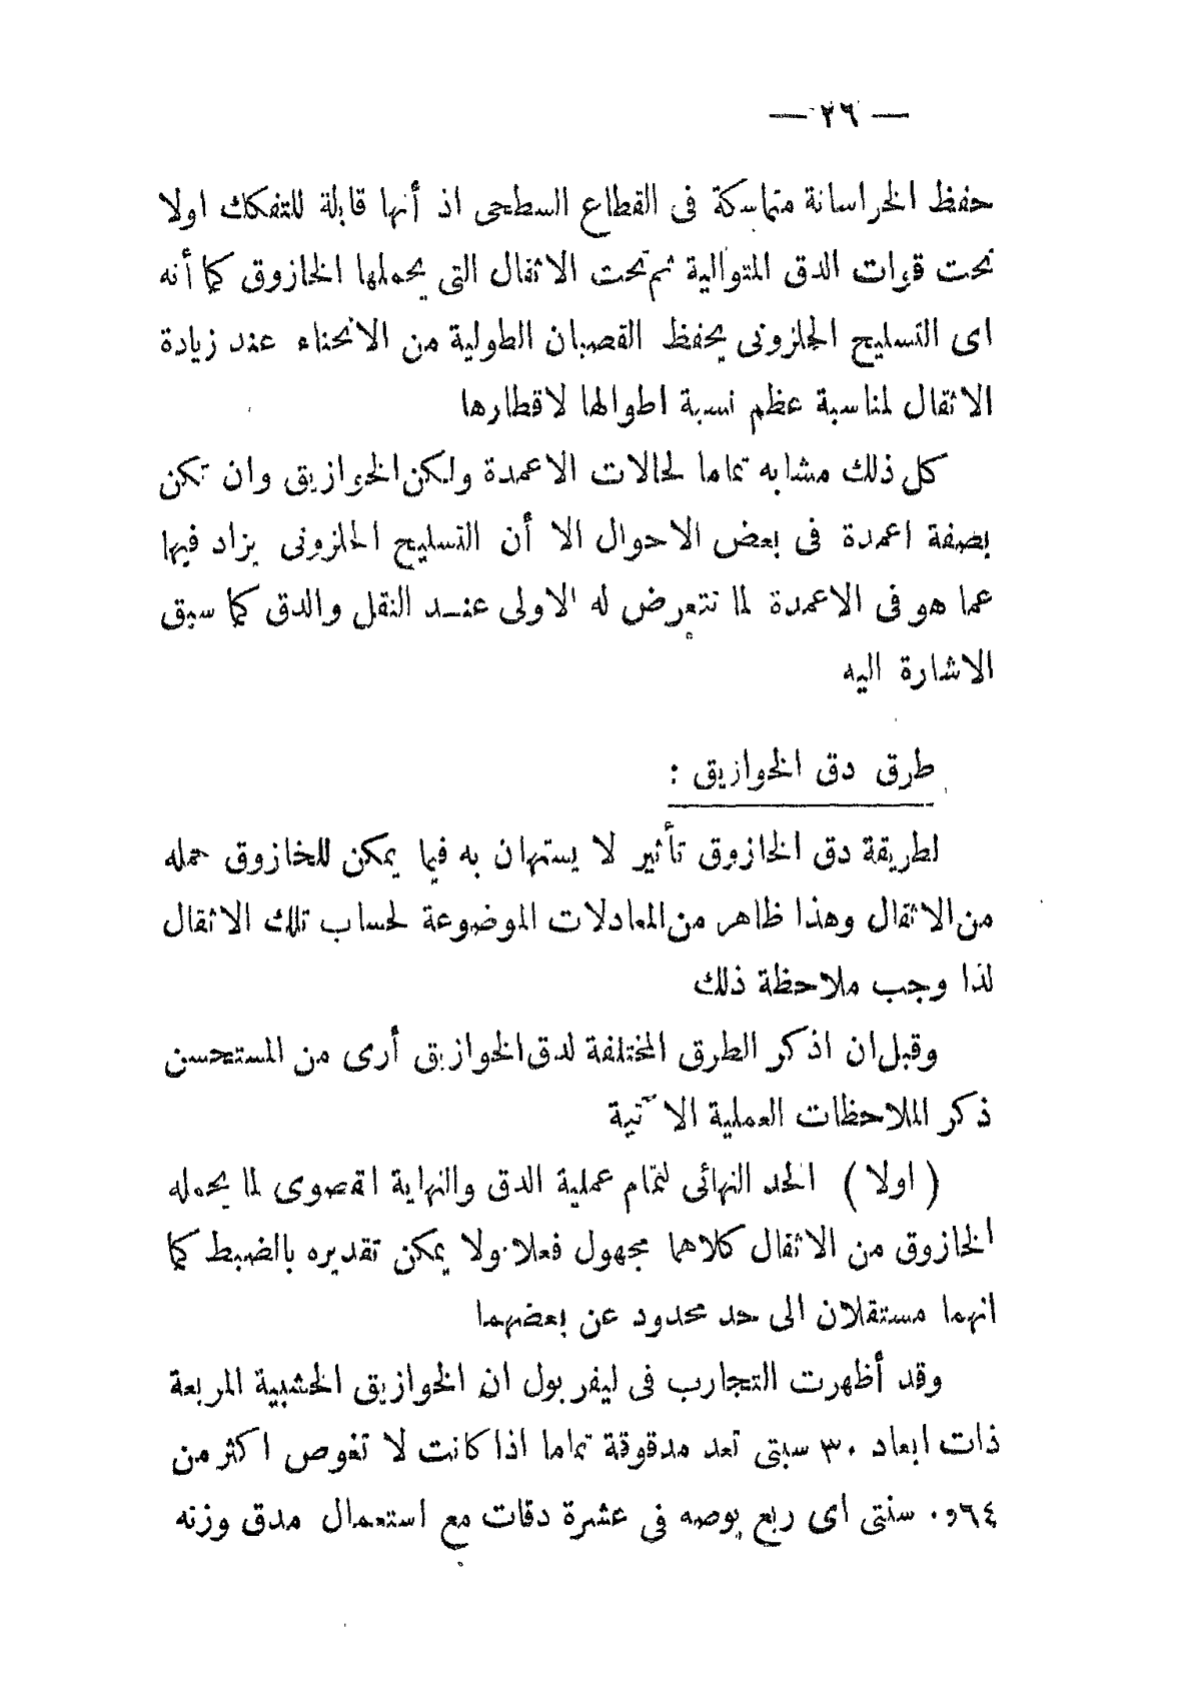 — ٢٦ —
حفظ الخراسانة متماسكة فى القطاع السطحى اذ أنها قابلة للتفكك اولا
تحت قوات الدق المتوالية ثم تحت الاثقال التى يحملها الخازوق كما أنه
اى التسليح الحلزونى يحفظ القصبان الطولية من الانحناء عند زيادة
الاثقال لمناسبة عظم نسبة اطوالها لاقطارها
كل ذلك مشابه تماما لحالات الاعمدة ولكن الخوازيق وان تكن
بصفة اعمدة فى بعض الاحوال الا أن التسليح الحلزونى يزاد فيها
عما هو فى الاعمدة لما تتعرض له الاولى عند النقل والدق كما سبق
الاشارة اليه
طرق دق الخوازيق :
لطريقة دق الخازوق تأثير لا يستهان به فيما يمكن للخازوق حمله
من الاثقال وهذا ظاهر من المعادلات الموضوعة لحساب تلك الاثقال
لذا وجب ملاحظة ذلك
وقبل ان اذكر الطرق المختلفة لدق الخوازيق أرى من المستحسن
ذكر الملاحظات العملية الآتية
( اولا ) الحد النهائى لتمام عملية الدق والنهاية القصوى لما يحمله
الخازوق من الاثقال كلاهما مجهول فعلا ولا يمكن تقديره بالضبط كما
انهما مستقلان الى حد محدود عن بعضهما
وقد أظهرت التجارب فى ليفربول ان الخوازيق الخشبية المربعة
ذات ابعاد ٣٠ سبتى تعد مدقوقة تماما اذا كانت لا تغوص اكثر من
٦٤و٠ سنتى اى ربع بوصه فى عشرة دقات مع استعمال مدق وزنه